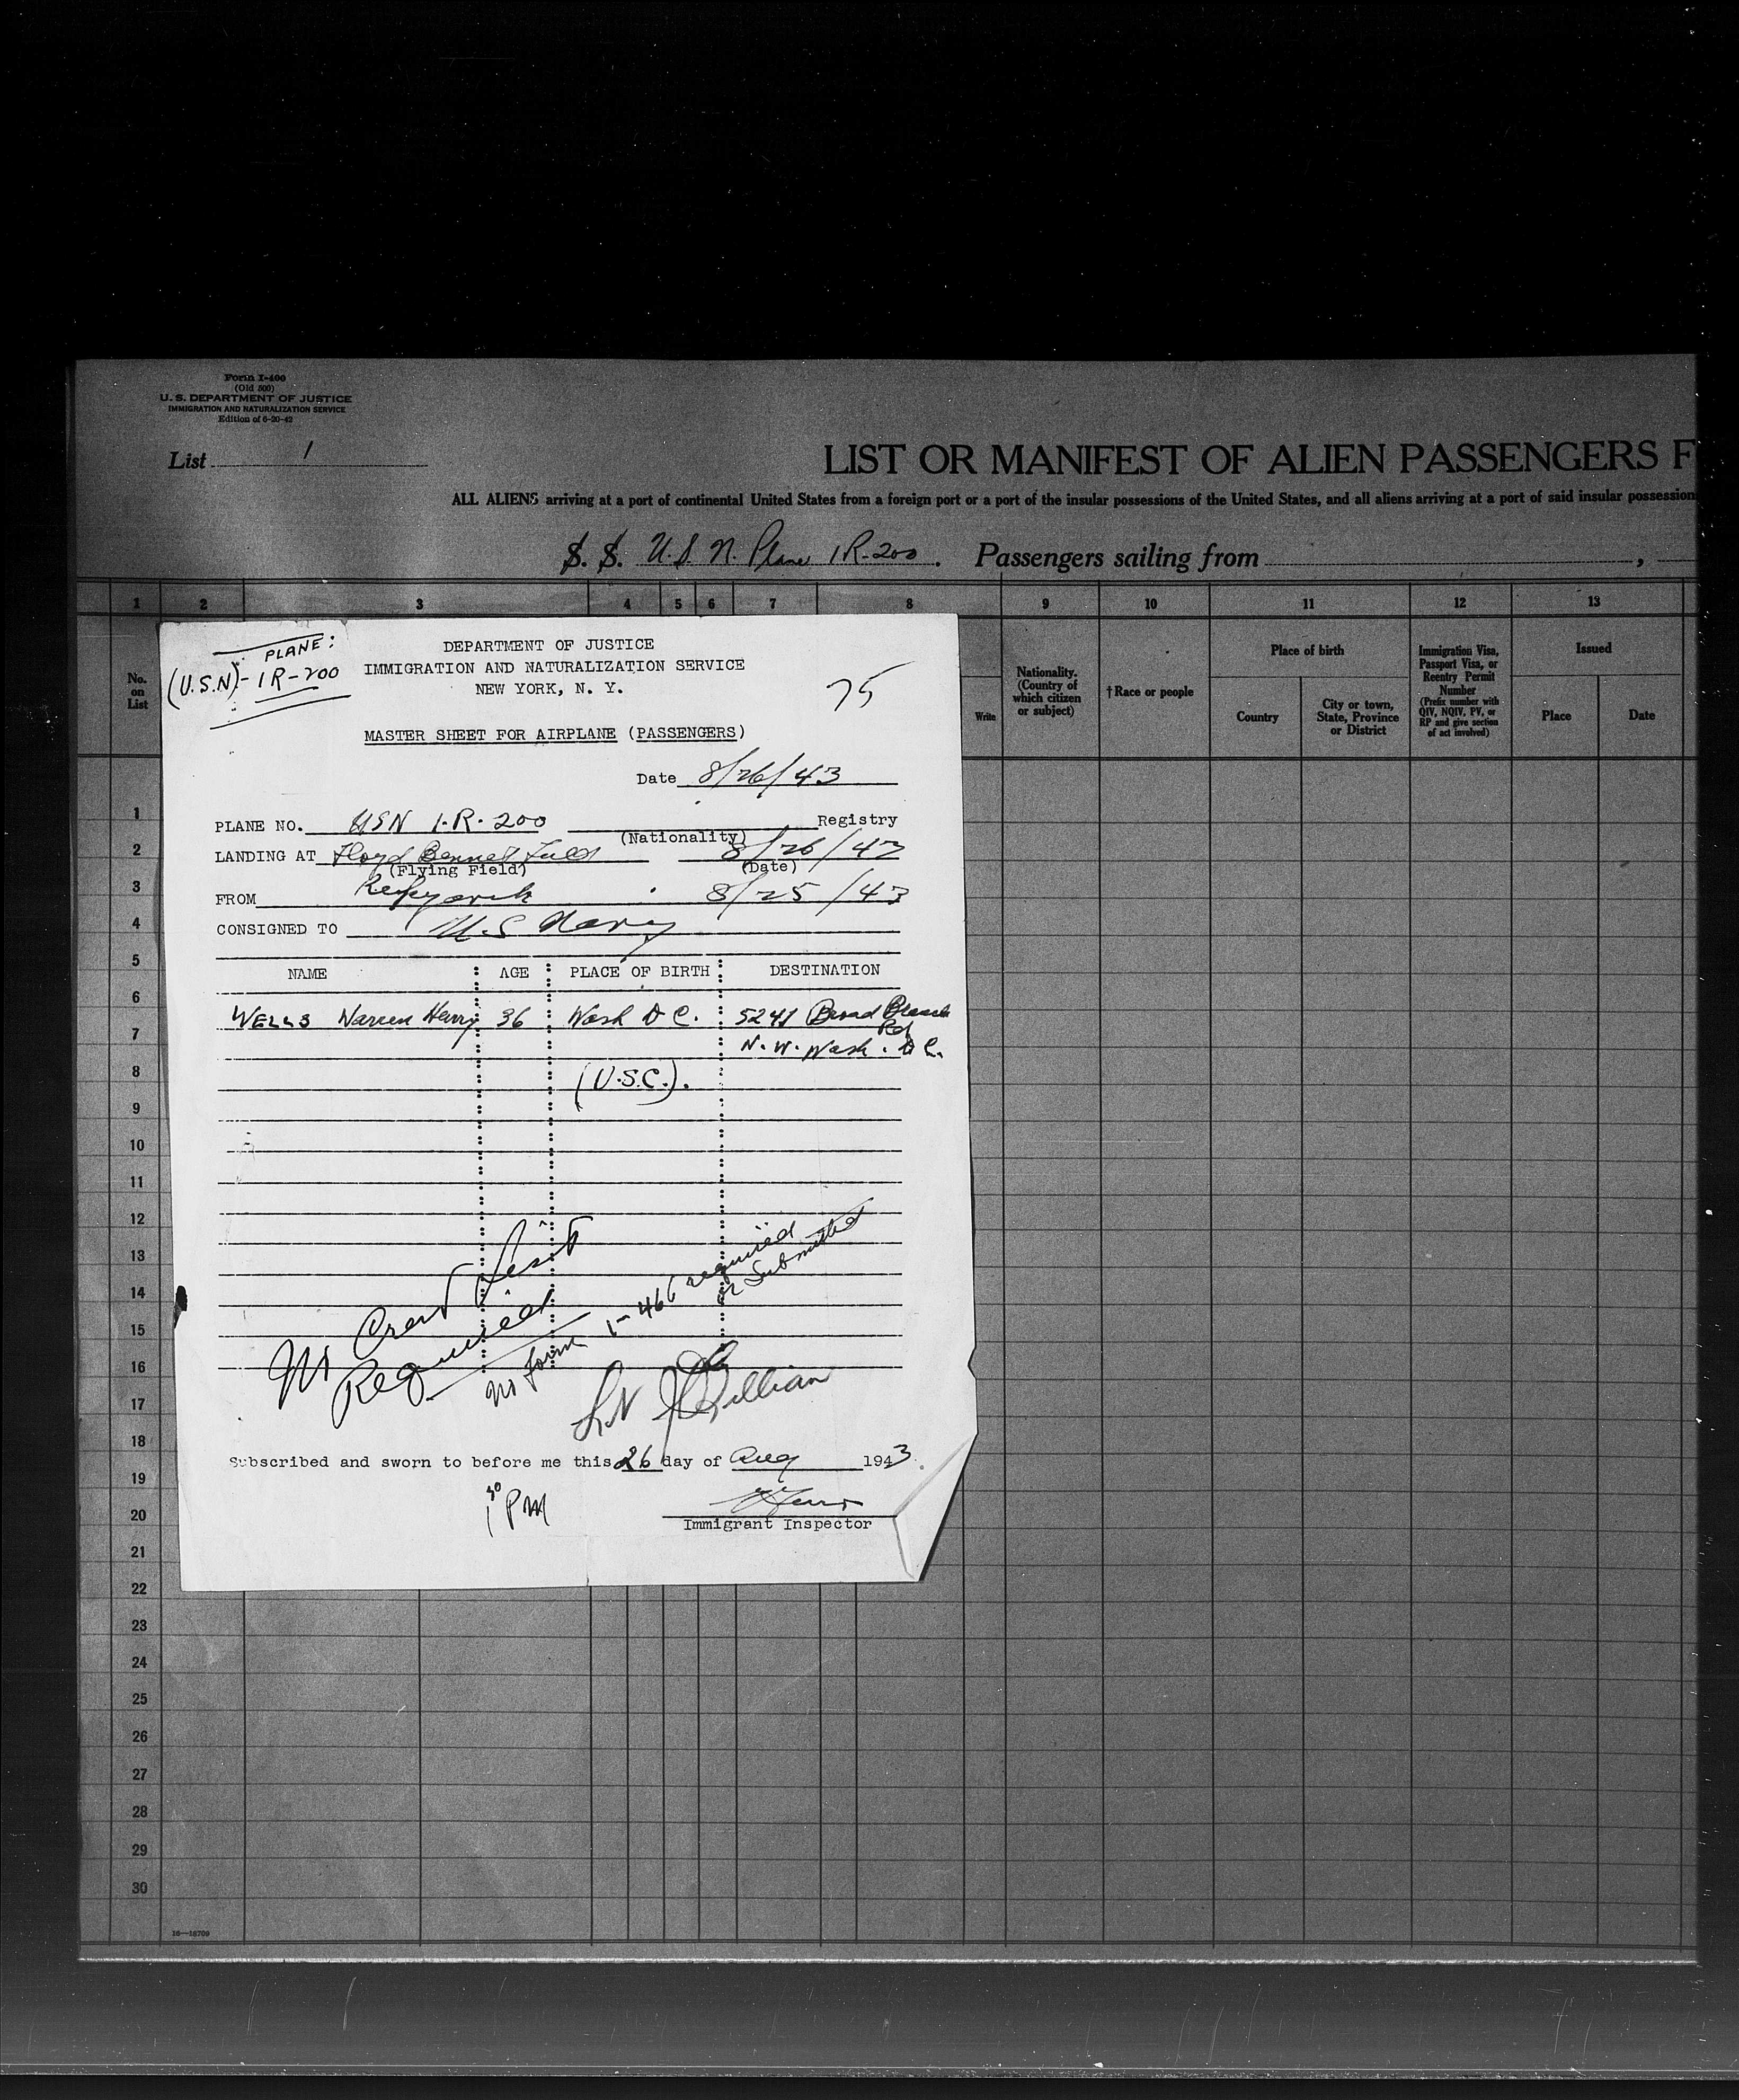 Form I-400
(Old 500)
U. S. DEPARTMENT OF JUSTICE
IMMIGRATION AND NATURALIZATION SERVICE
Edition of 6-20-42
List 1
LIST OR MANIFEST OF ALIEN PASSENGERS F
ALL ALIENS arriving at a port of continental United States from a foreign port or a port of the insular possessions of the United States, and all aliens arriving at a port of said insular possession
S. S. U.S.N. Plane 1R-200. Passengers sailing from ,
1 2 3 4 5 6 7 8 9 10 11 12 13
No. on List
Write
Nationality. (Country of which citizen or subject)
†Race or people
Place of birth
Country
City or town, State, Province or District
Immigration Visa, Passport Visa, or Reentry Permit Number
(Prefix number with QIV, NQIV, PV, or RP and give section of act involved)
Issued
Place
Date
PLANE:
(U.S.N)- 1R-200
DEPARTMENT OF JUSTICE
IMMIGRATION AND NATURALIZATION SERVICE
NEW YORK, N. Y.
75
MASTER SHEET FOR AIRPLANE (PASSENGERS)
Date 8/26/43
PLANE NO. USN 1.R.200 Registry
(Nationality)
LANDING AT Floyd Bennet Field 8/26/43
(Flying Field) (Date)
FROM 8/25/43
CONSIGNED TO U.S Navy
NAME AGE PLACE OF BIRTH DESTINATION
WELLS Warren Henry 36 Wash D C. 5241 Broad Branch
Rd
N.W. Wash. D C.
(U.S.C.).
No Crew List
Required
no form I-466 required
or Submitted
Subscribed and sworn to before me this 26 day of Aug 1943.
1 30 PM
Immigrant Inspector
1
2
3
4
5
6
7
8
9
10
11
12
13
14
15
16
17
18
19
20
21
22
23
24
25
26
27
28
29
30
16—18709